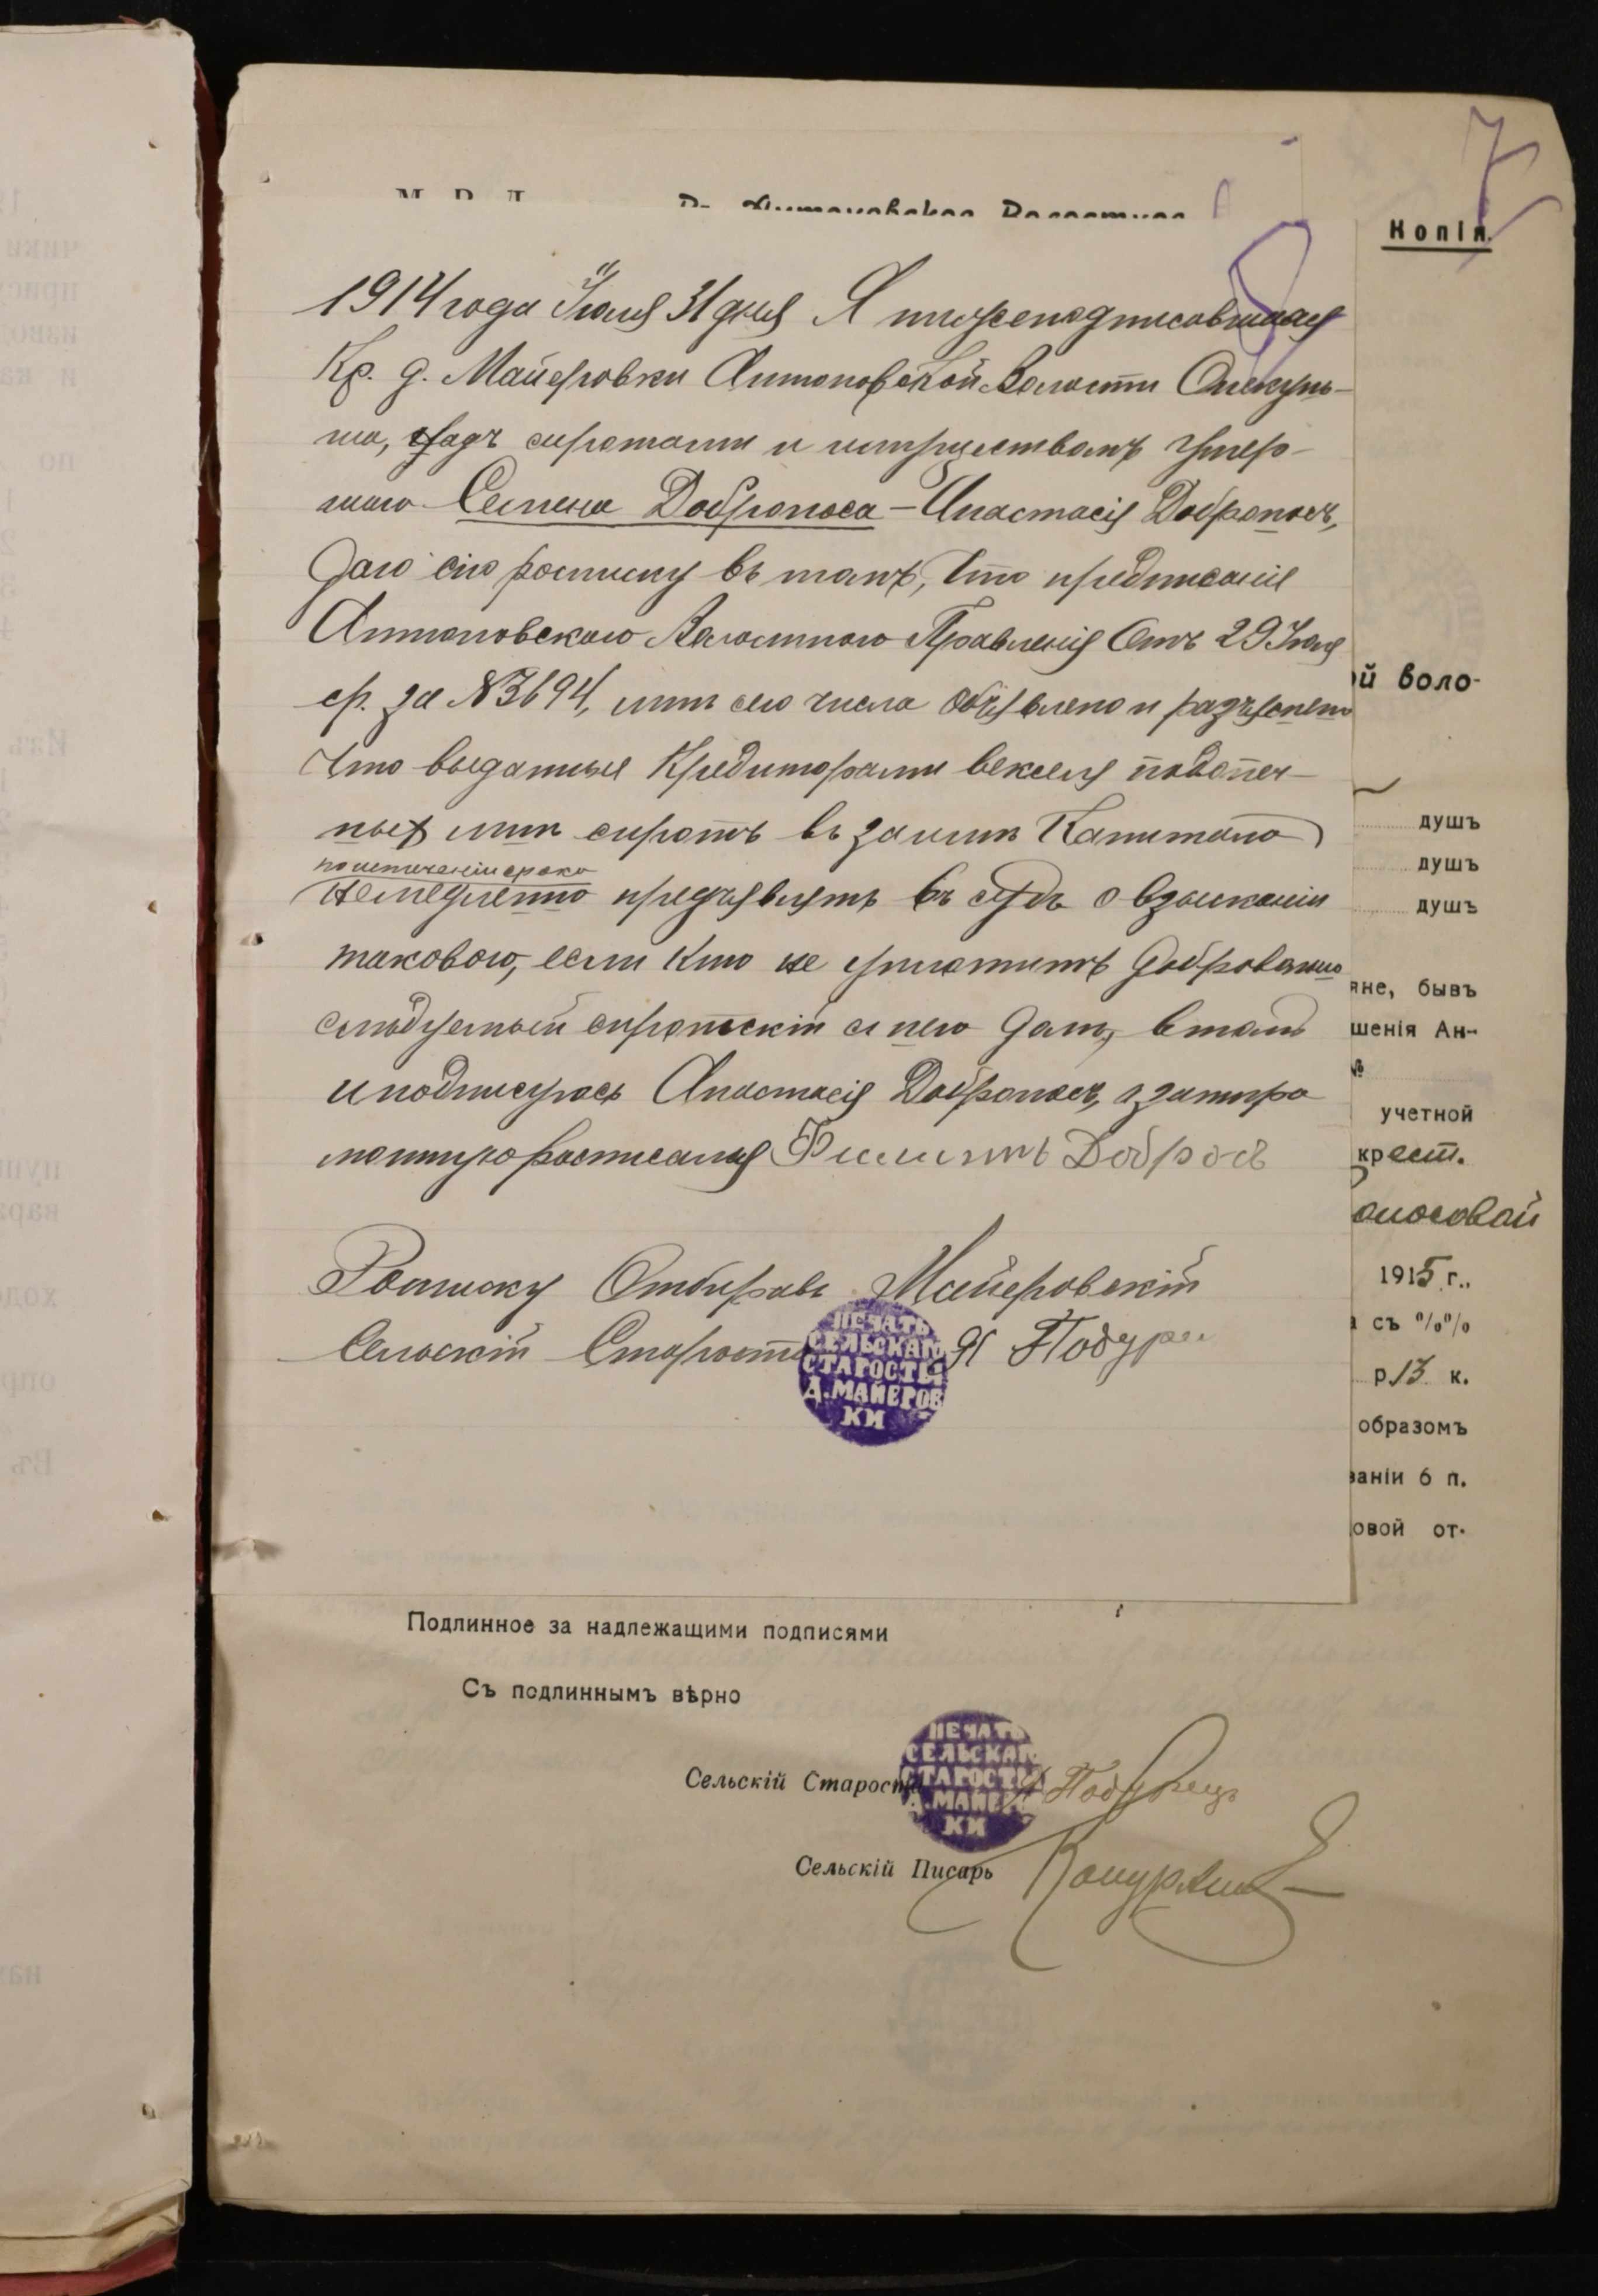 7
Копія
1914 года Іюля 31 дня Я нижеподписавшаяся
Кр. д. Майеровки Антоновской Волости Опекун-
ша, надъ сиротами и имуществомъ умер-
шаго Семена Доброноса – Анастасія Доброносъ,
даю сію росписку въ томъ, что предписаніе
Антоновского Волостного Правленія Отъ 29 Іюля
ср. за №3694, мнѣ сего числа объявлено и разъяснено
Что выданные Кредиторами векселя подопеч-
ныхъ мнѣ сиротъ въ займъ Капитала
по истеченіи срока
немедленно предъявлять въ судъ о взысканіи
такового, если кто не уплатитъ добровольно
слѣдуемый сиротскій с него долгъ, в томъ
и подписуюсь Анастасія Доброносъ, а за нигра
мотную росписался Филиппъ Добросъ
Росписку Отбиралъ Майеровскій
Сельскій Староста Я Подуре
ПЕЧАТЬ
СЕЛЬСКАГО
СТАРОСТЫ
Д. МАЙЕРОВ
КИ
ой воло-
душъ
душъ
душъ
яне, бывъ
шенія Ан-
№
учетной
крест.
оносовой
1915 г.,
съ %%
р 13 к.
образомъ
ваніи 6 п.
овой от-
Подлинное за надлежащими подписями
Съ подлиннымъ вѣрно
Сельскій Староста Я Подурец
ПЕЧАТЬ
СЕЛЬСКАГО
СТАРОСТЫ
Д. МАЙЕРОВ
КИ
Сельскій Писарь